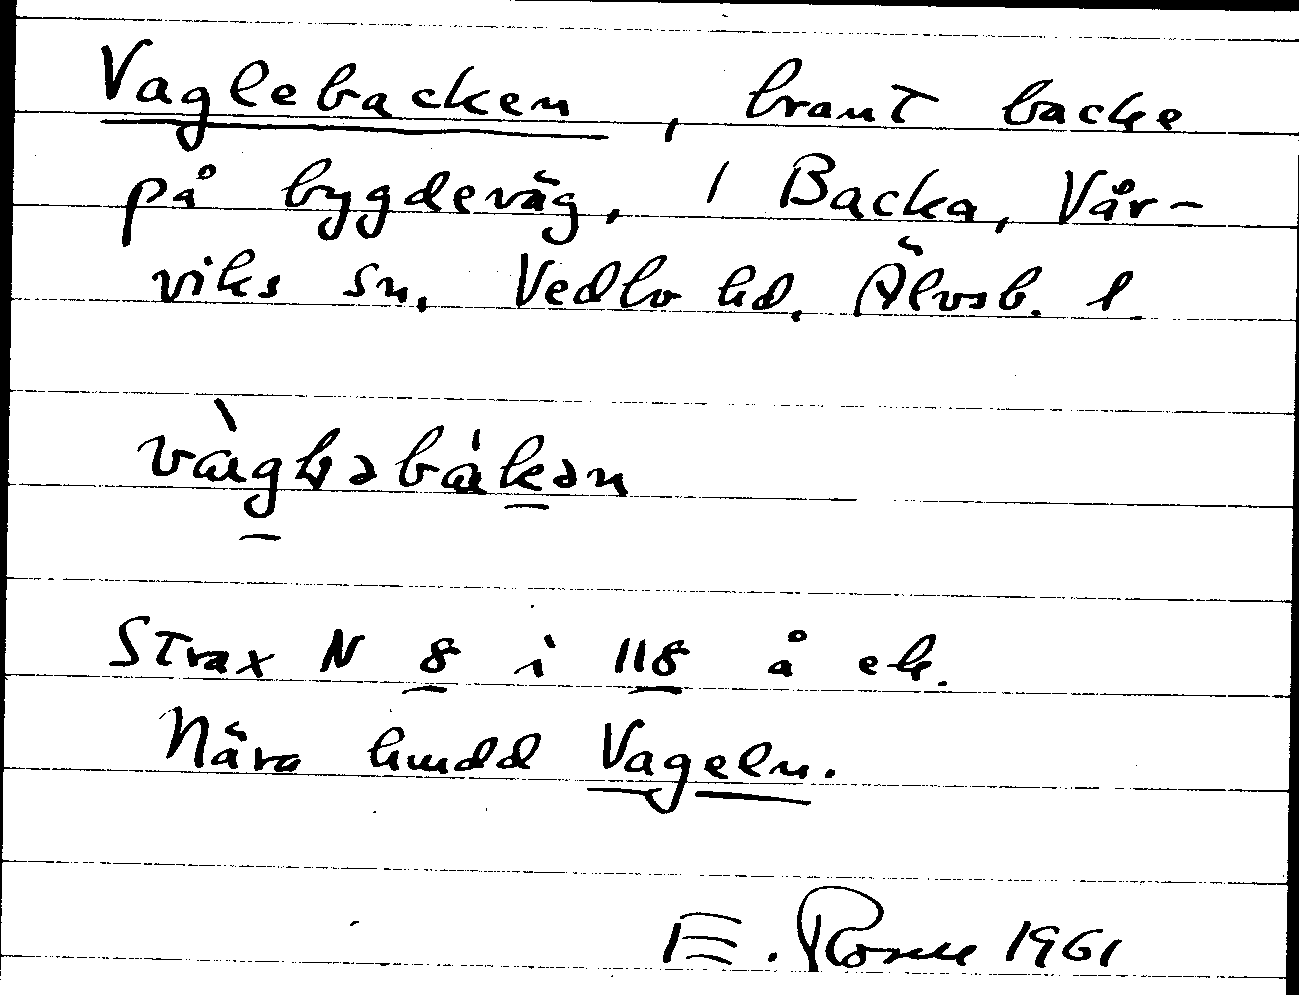 Vaglebacken, brant backe
på bygdeväg, 1 Backa, Vår-
viks sn, Vedbo hd, Älvsb. l.
Strax N 8 i 118 å ek.
Nära hmdd Vageln.
E. 1961